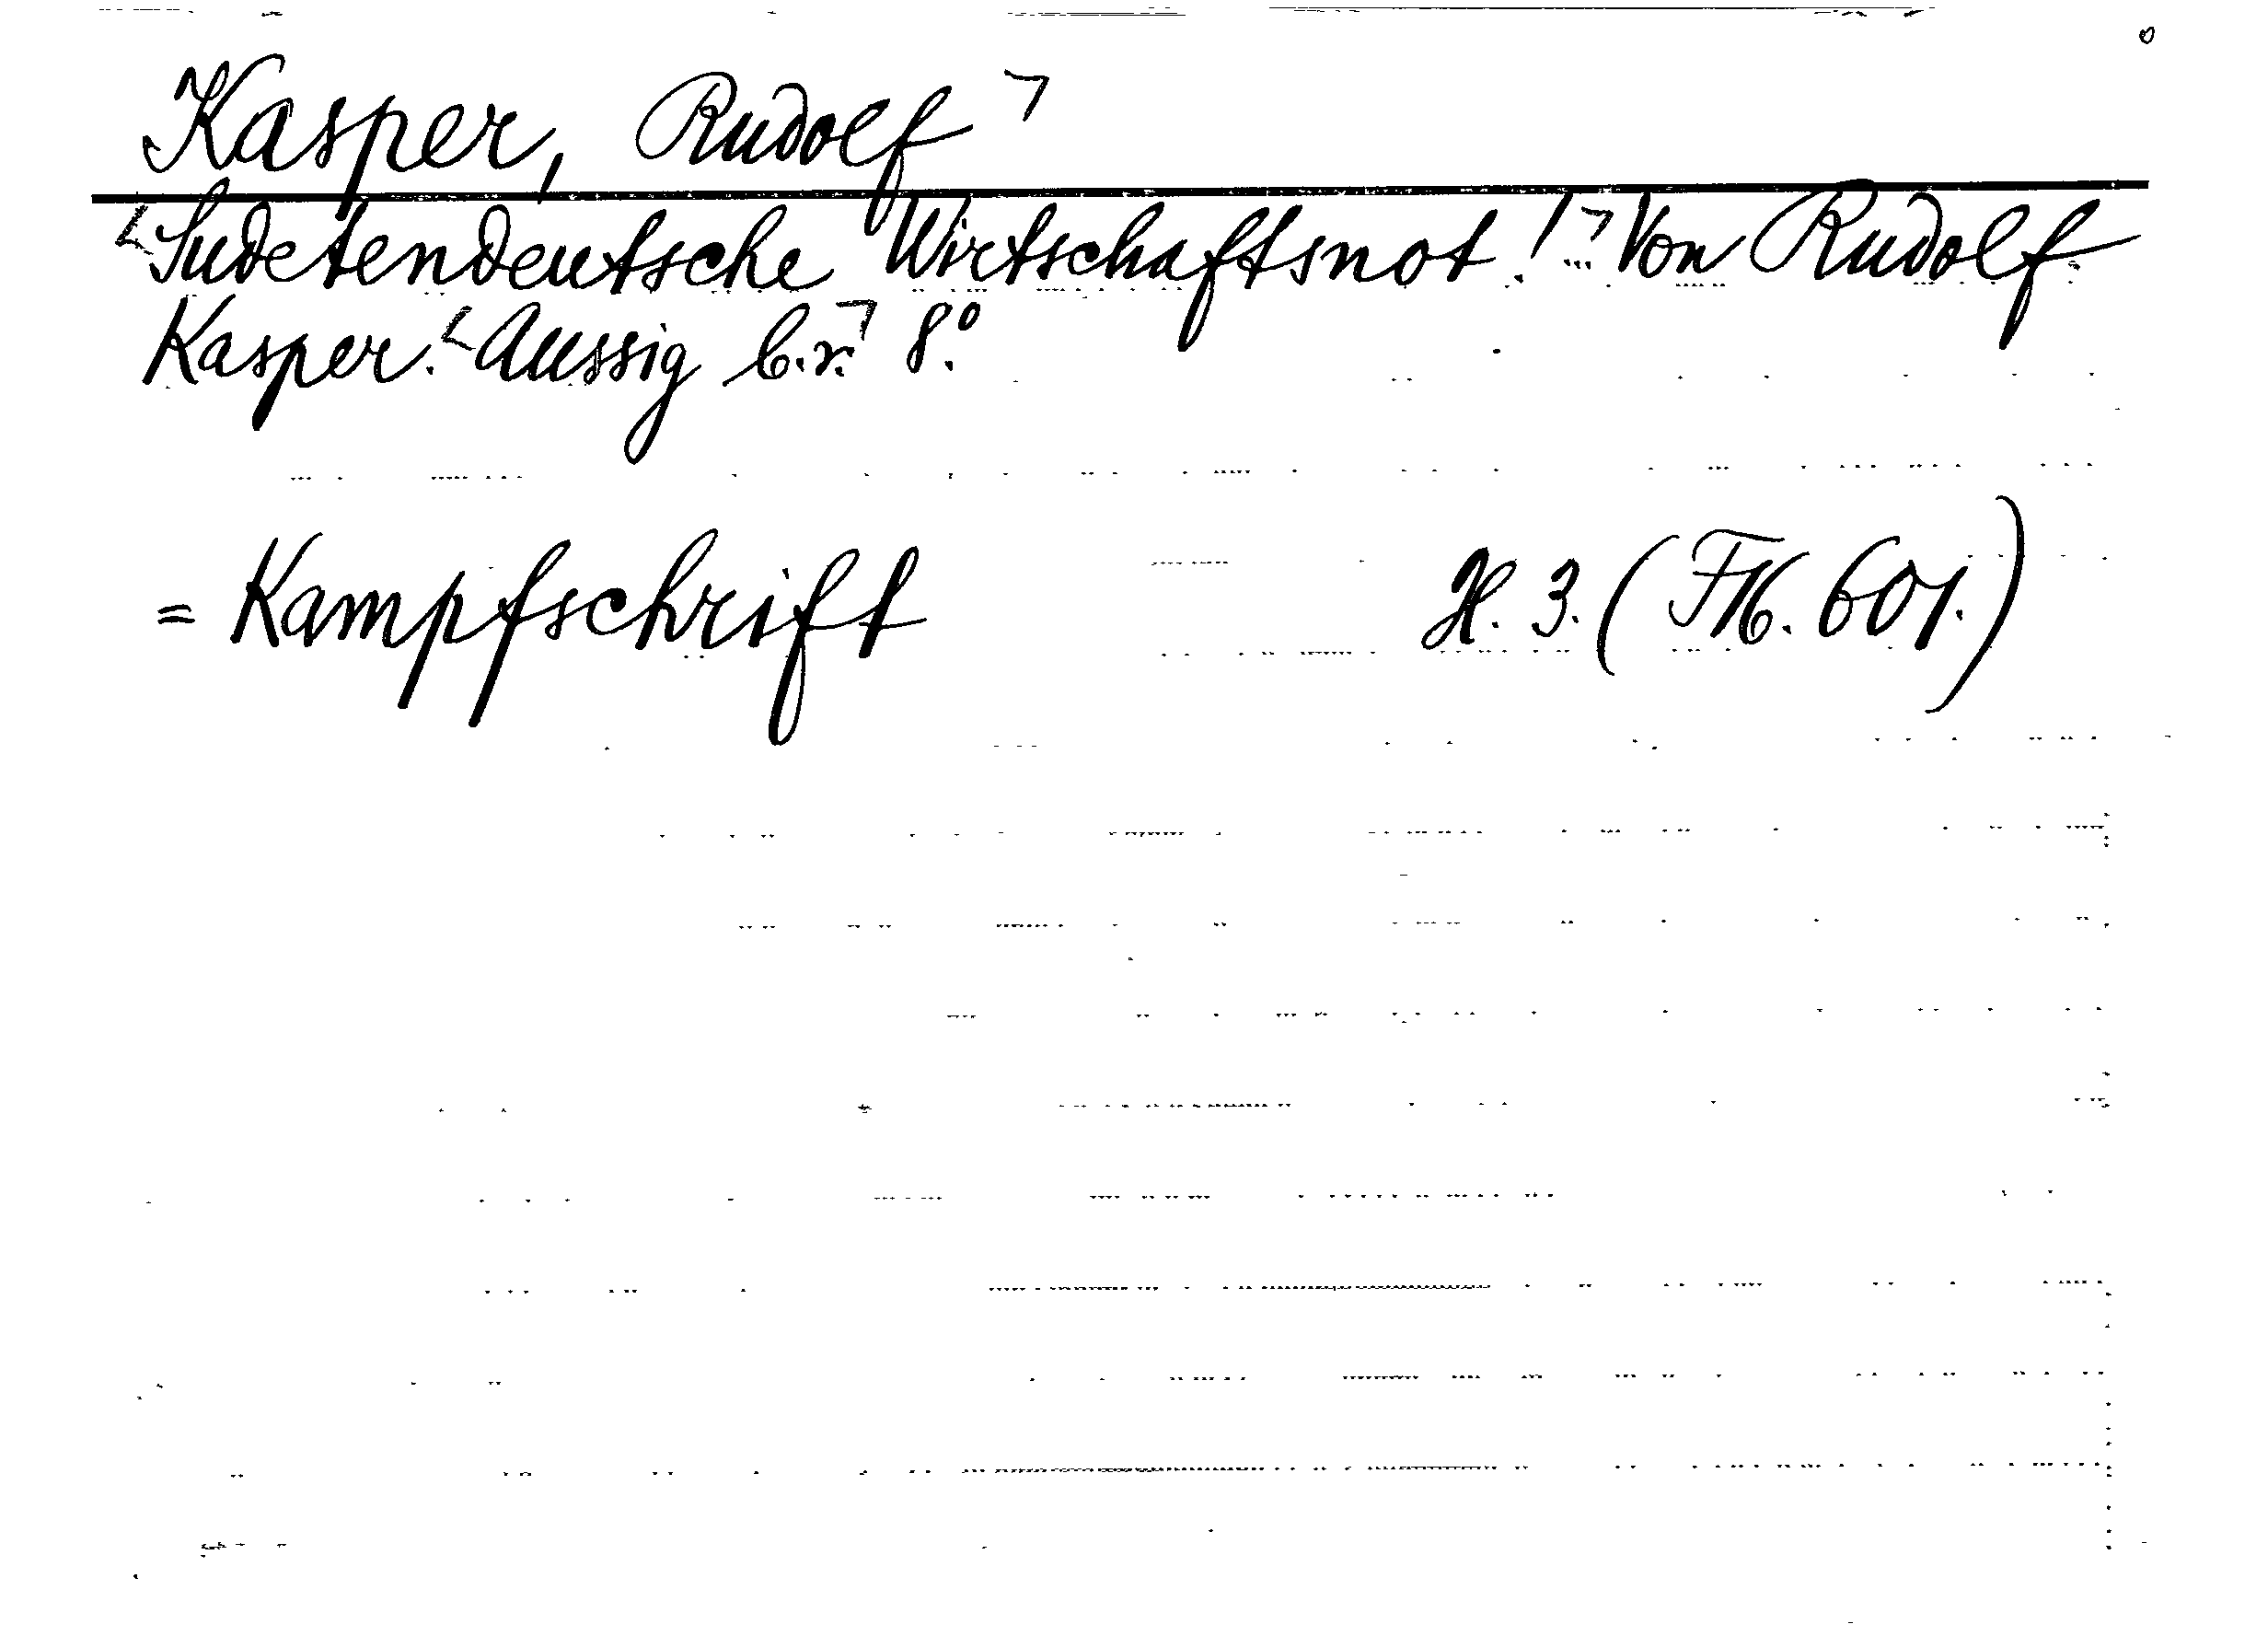 Kasper, Rudolf ¬
<Sudetendeutsche Wirtschaftsnot!¬ ... Von Rudolf
Kasper. <Aussig 8.°
= Kampfschrift H. 3. (